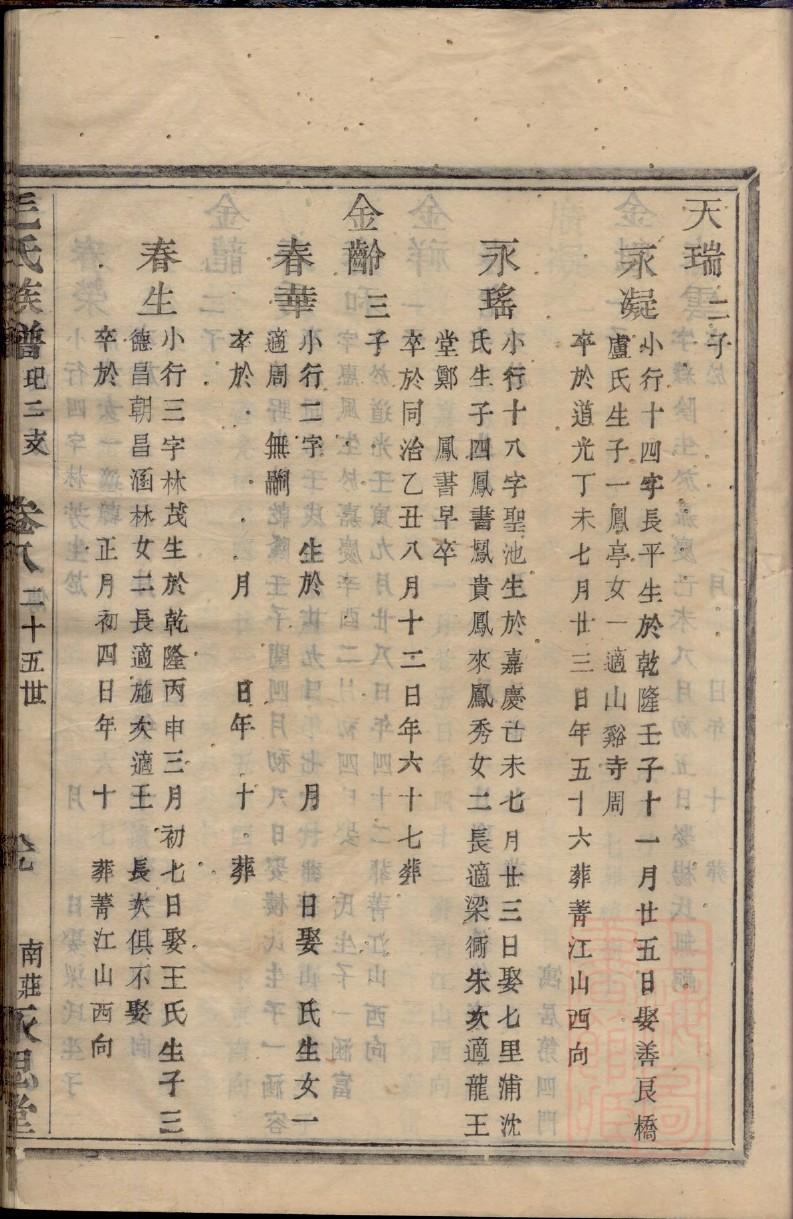 天瑞二子
永凝
小行十四字長平生於乾隆壬子十一月廿五日娶善良橋
盧氏生子一鳳亭女一適山谿寺周
卒於道光丁未七月廿三日年五十六葬菁江山西向
永瑤
小行十八字聖池生於嘉慶己未七月廿三日娶七里浦沈
氏生子四鳳書鳳貴鳳來鳳秀女二長適梁衕朱次適龍王
堂鄭 鳳書早卒
卒於同治乙丑八月十二日年六十七葬
金齡三子
春華
小行二字 生於 月 日娶 氏生女一
適周 無嗣
卒於 月 日年 十 葬
春生
小行三字林茂生於乾隆丙申三月初七日娶王氏生子三
德昌朝昌涵林女二長適施次適王 長次俱不娶
卒於 正月初四日年六十 葬菁江山西向
毛氏族譜 玘二支 卷八 二十五世 南莊永思堂